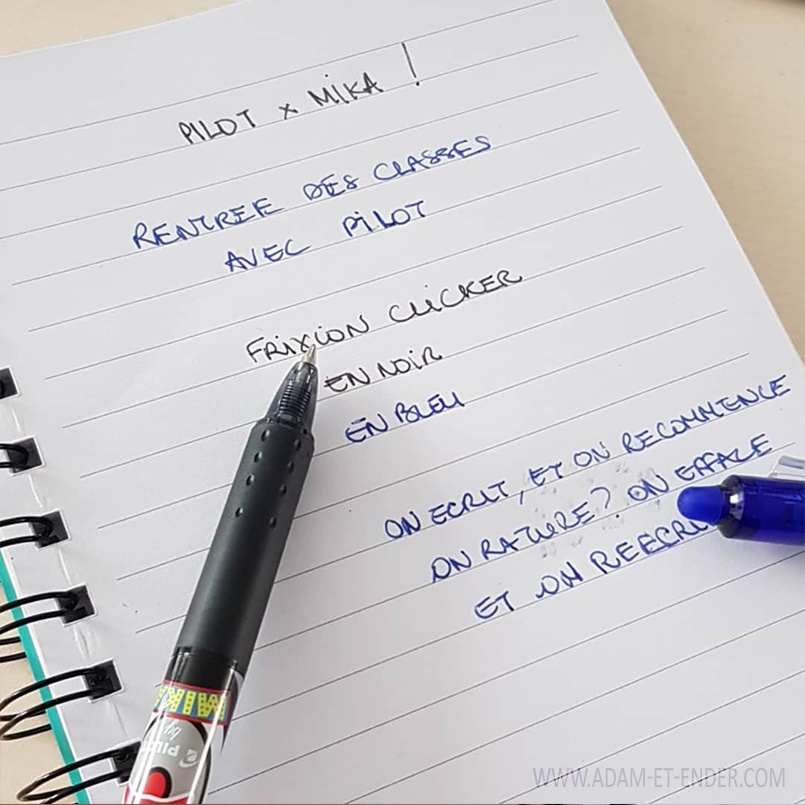 PILOT x MIKA !
RENTREE DES CLASSES
AVEC PILOT
FRIXION CLICKER
EN NOIR
EN BLEU
ON ECRIT, ET ON RECOMMENCE
ON RATURE? ON EFFACE
ET ON REECRI
MIKA
by
PILOT
WWW.ADAM-ET-ENDER.COM